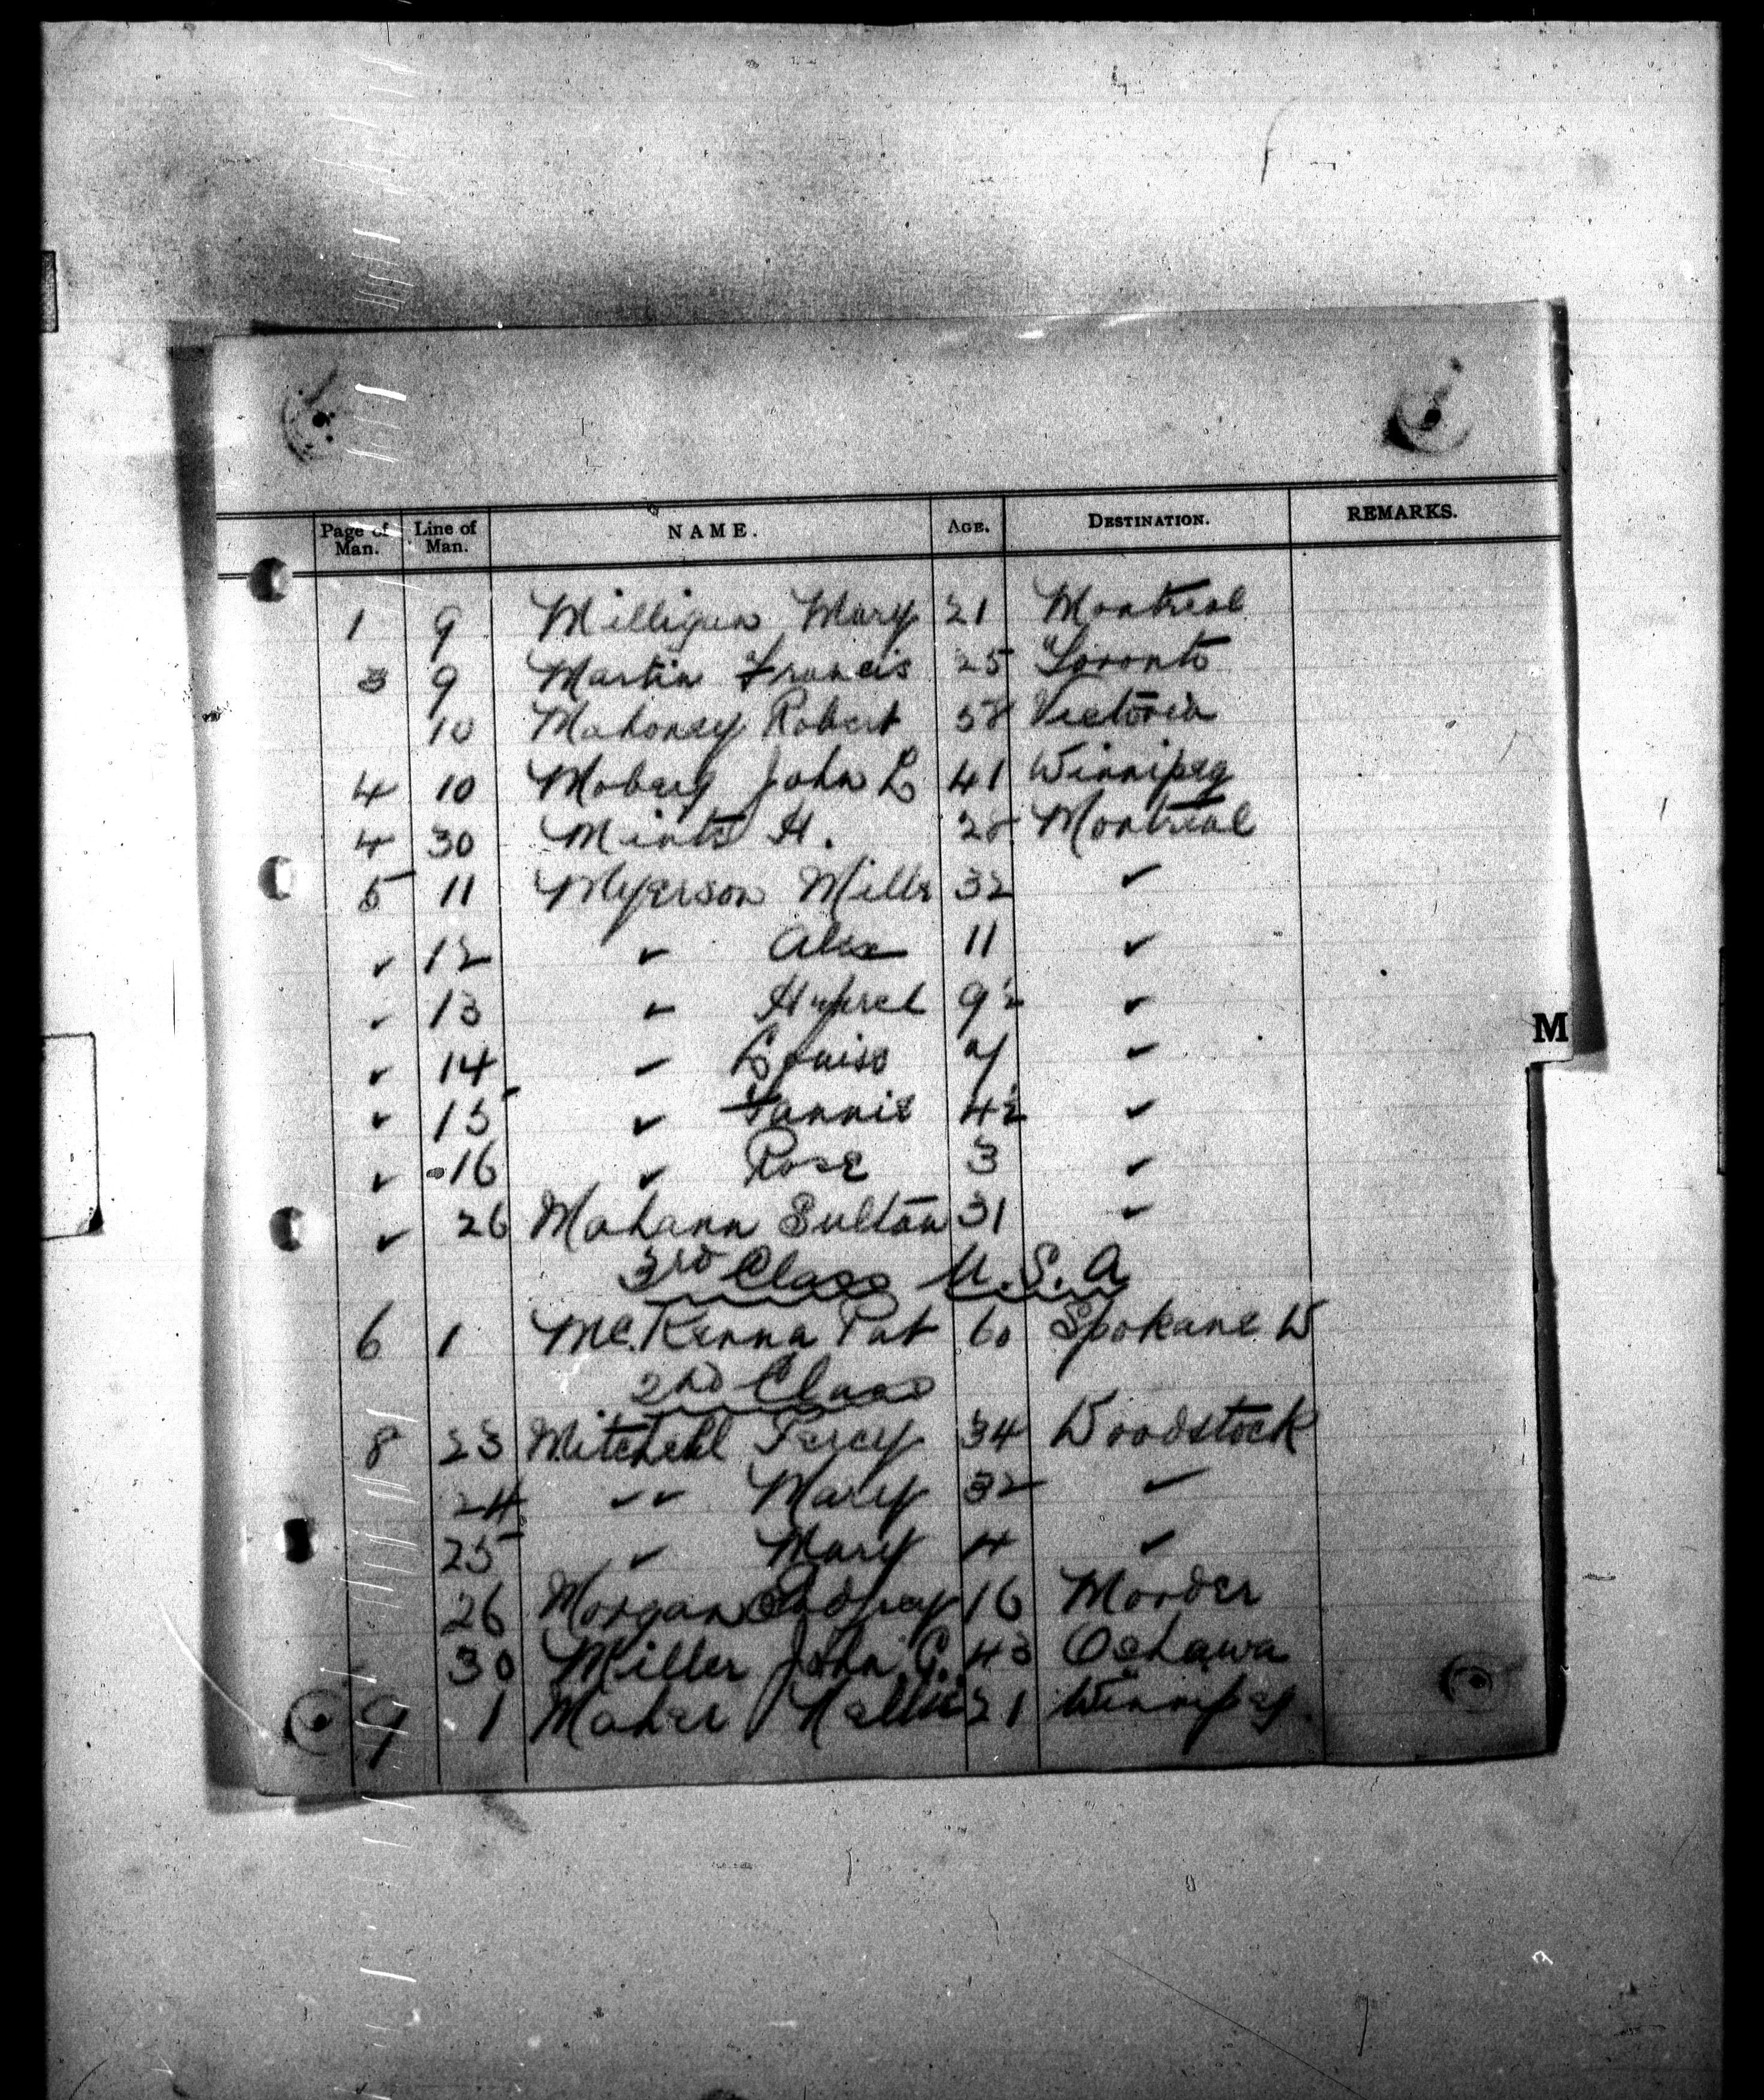 Page of Man. Line of Man. NAME. AGE. DESTINATION. REMARKS.
1 9 Milligan Mary 21 Montreal
3 9 Martin Francis 25 Toronto
10 Mahoney Robert 38 Victoria
4 10 Moberg John L 41 Winnipeg
4 30 Mints H. 28 Montreal
5 11 Myerson Mills 32 ✓
✓ 12 ✓ Alex 11 ✓
✓ 13 ✓ 9½ ✓
✓ 14 ✓ Louise 7 ✓
✓ 15 ✓ Fannie 4½ ✓
✓ 16 ✓ Rose 3 ✓
M
✓ 26 Mahann Sultan 31 ✓
3rd Class U.S.A
6 1 McKenna Pat 60 Spokane W
2nd Class
8 23 Mitchell Percy 34 Woodstock
24 ✓✓ Mary 32 ✓
25 ✓ Mary 4 ✓
26 Morgan Godfrey 16 Morder
30 Miller John C. 43 Oshawa
9 1 Maher Nellie 21 Winnipeg